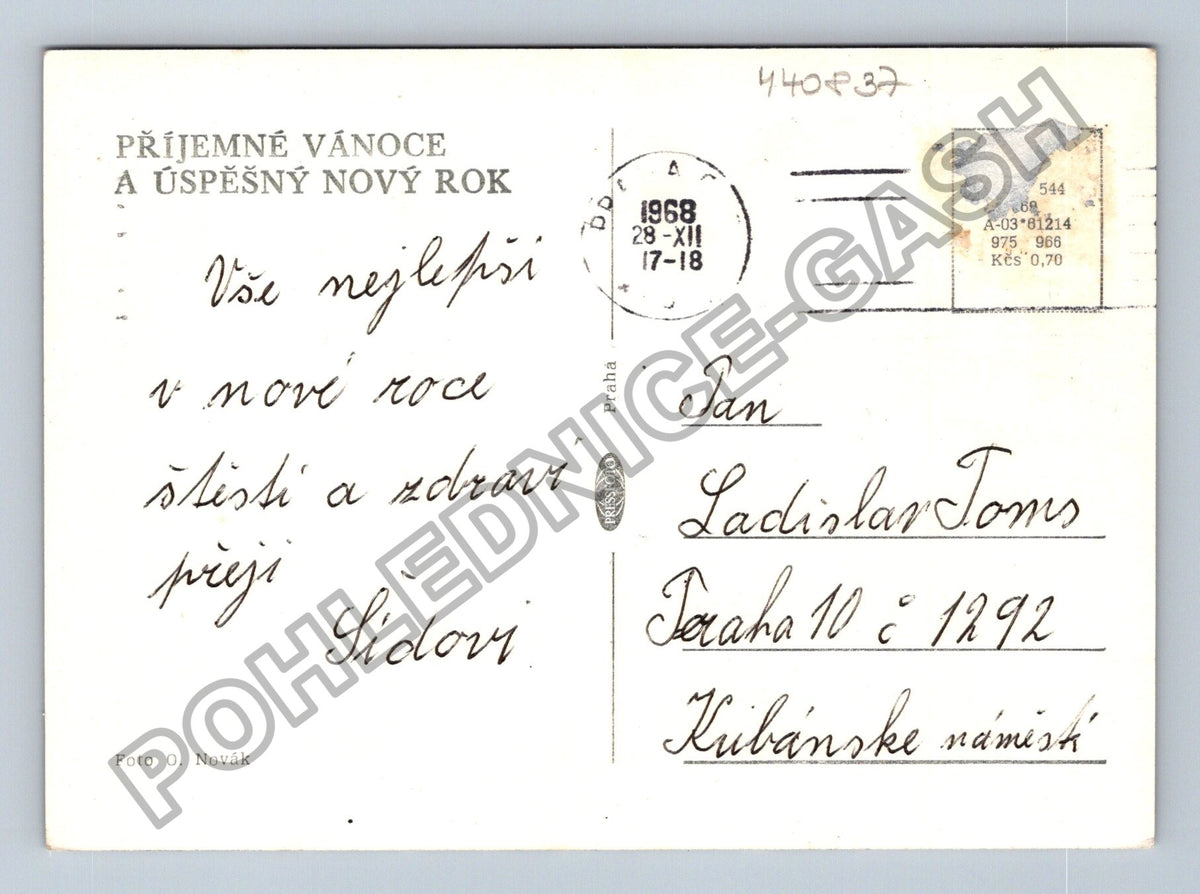 440837
PŘÍJEMNÉ VÁNOCE
A ÚSPĚŠNÝ NOVÝ ROK
Vše nejlepší
v nové roce
štěstí a zdraví
přejí
Šídovi
Foto O. Novák
Praha
PRESSFOTO
1968
28-XII
17-18
544
69
A-03*61214
975 966
Kčs 0,70
Pan
Ladislav Toms
Praha 10 č 1292
Kubánske náměstí
POHLEDNICE-GASH